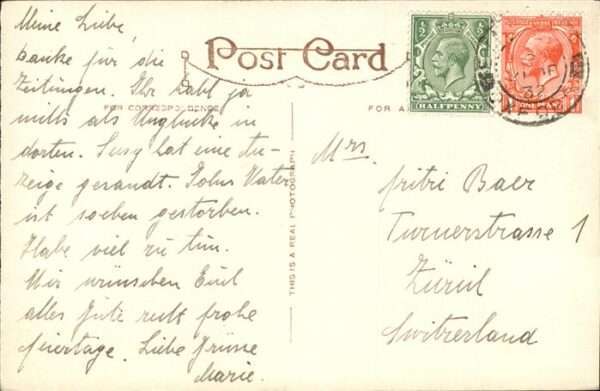 Meine Liebe,
Danke für die
Zeitungen. Ihr habt ja
nichts als Unglücke in
dorten. Susy hat eine An-
zeige gesandt. Johns Vater
ist soeben gestorben.
Habe viel zu tun.
Wir wünschen Euch
alles Gute recht frohe
Feiertage. Liebe Grüsse
Marie.
Post Card
FOR CORRESPONDENCE
FOR A
THIS IS A REAL PHOTOGRAPH
HALFPENNY
ONE PENNY
32
Mrs.
Fritzi Baer
Turnerstrasse 1
Zürich
Switzerland